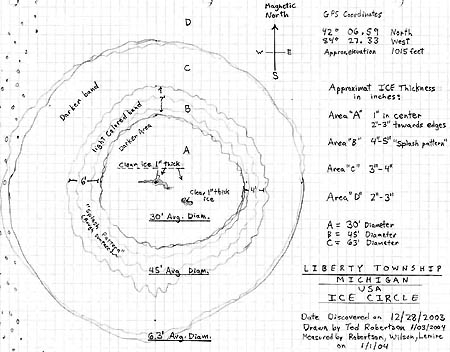 Magnetic
North
W E
S
GPS Coordinates
42° 06.59 North
84° 27.33 West
Approx. elevation 1015 feet
D
C
B
A
Darker band
light colored band
Darker Area
Clear ice 1" thick
Clear 1" thick
ice
6'
4'
"Splash Pattern"
30' Avg. Diam.
45' Avg. Diam.
63' Avg. Diam.
Approximat ICE Thickness
in inches:
Area "A" 1" in center
2"-3" towards edges
Area "B" 4"-5" "Splash pattern"
Area "C" 3"-4"
Area "D" 2"-3"
A = 30' Diameter
B = 45' Diameter
C = 63' Diameter
LIBERTY TOWNSHIP
MICHIGAN
USA
ICE CIRCLE
Date Discovered on 12/28/2003
Drawn by Ted Robertson 1/03/2004
Measured by Robertson, Wilson,
on 1/1/04